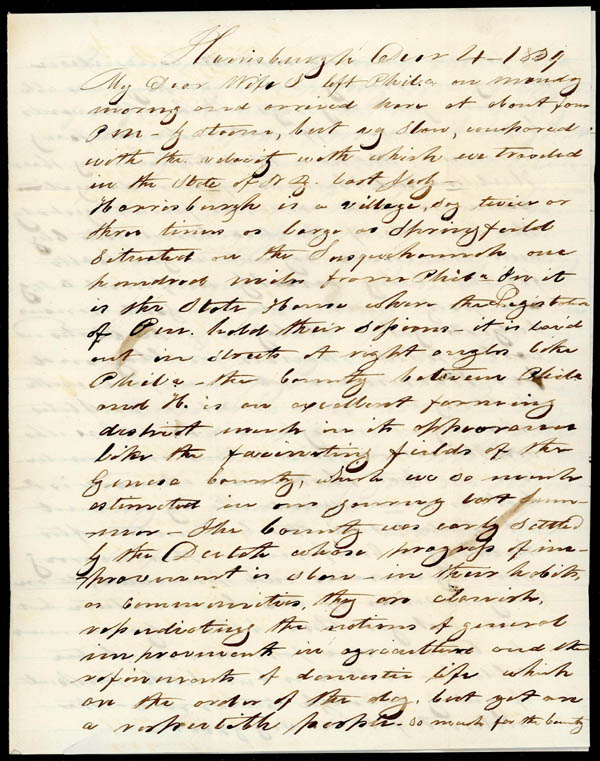 Harrisburgh Decr 4 - 1839
My Dear Wife I left Phila on monday
morng and arrived here at about four
P M - by steam, but vy slow, compared
with the velocity with which we traveled
in the State of N Y. last July -
Harrisburgh is a village, say twice or
three times as large as Springfield
Situated on the Susquehannah one
hundred miles from Phila In it
is the State House where the Legislatu
of Pen. hold their Sessions - it is laid
out in streets at right angles like
Phila - the County between Phila
and H. is an excellent farming
district much in its appearance
like the facinating fields of the
Genesa County, which we so much
in our journey last Sum-
mer - The County was early settled
by the Dutch whose progress of im-
provement is slow - in their habits,
as communities, they are clanish,
repudiating the notions of general
improvements in agraculture and the
refinements of domestic life which
are the order of the day, but yet are
a respectable people - so much for the County